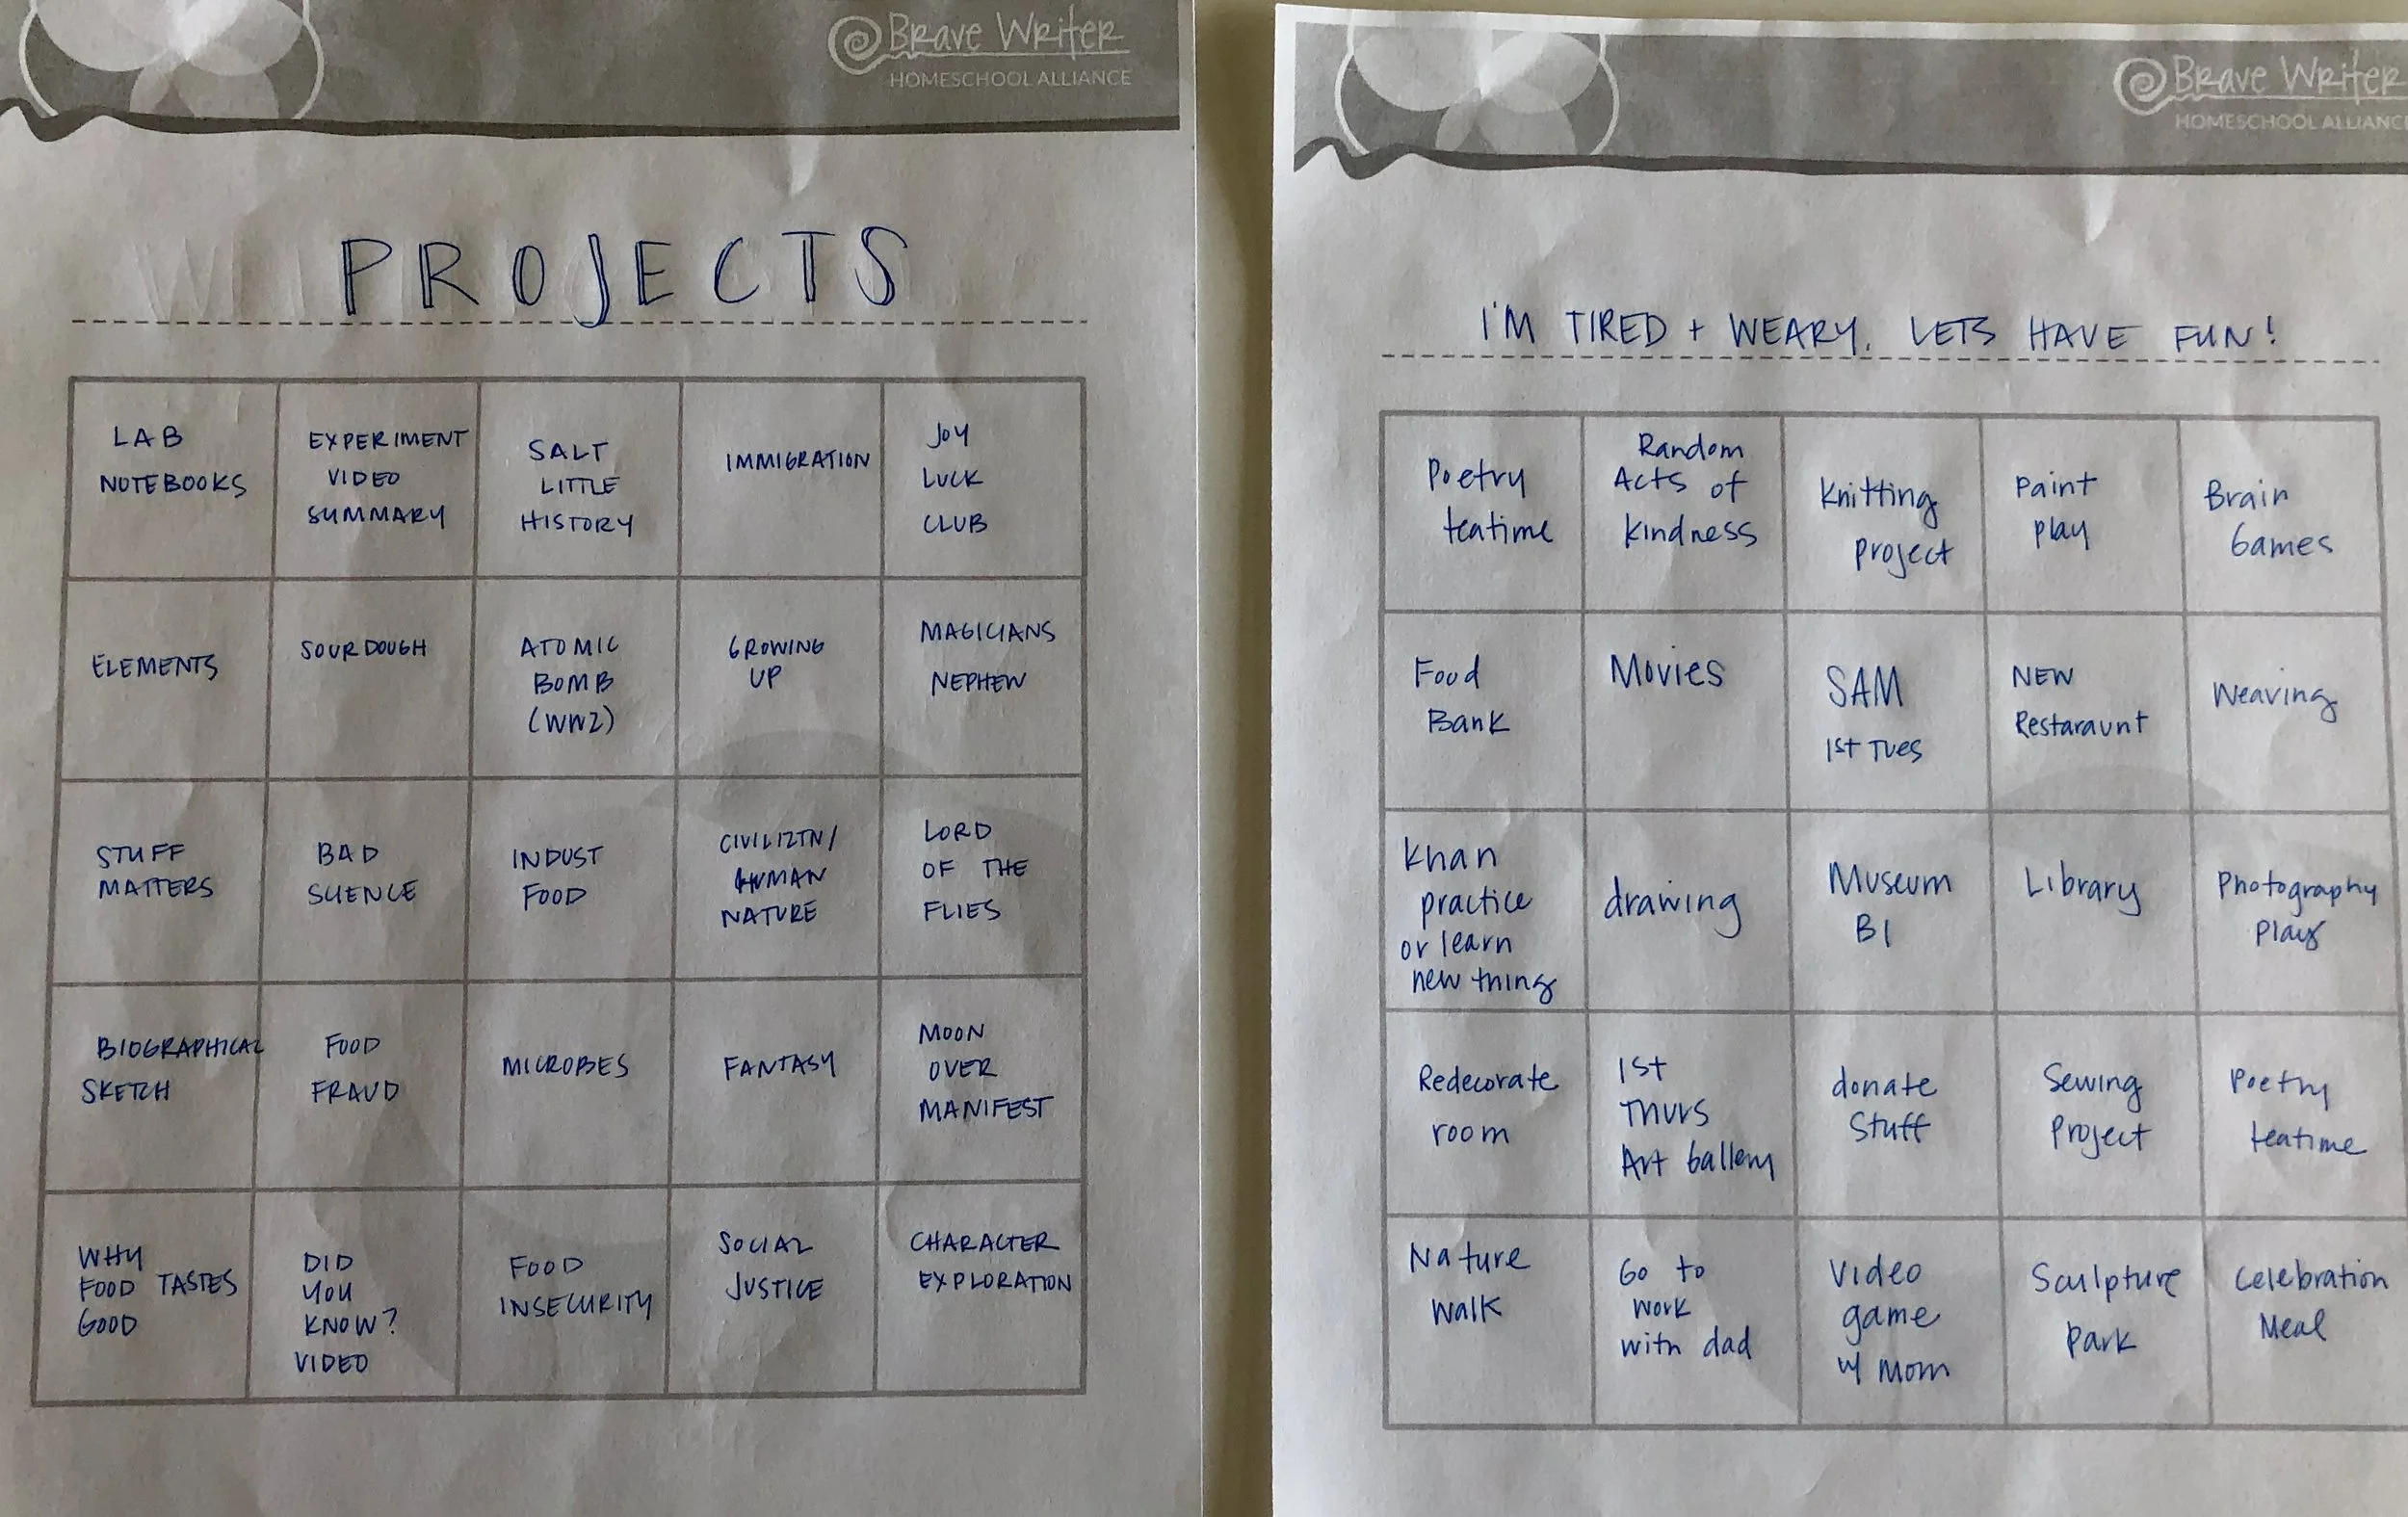 Brave Writer
HOMESCHOOL ALLIANCE
PROJECTS
LAB
NOTEBOOKS
EXPERIMENT
VIDEO
SUMMARY
SALT
LITTLE
HISTORY
IMMIGRATION
JOY
LUCK
CLUB
ELEMENTS
SOURDOUGH
ATOMIC
BOMB
(WW2)
GROWING
UP
MAGICIANS
NEPHEW
STUFF
MATTERS
BAD
SCIENCE
INDUST
FOOD
CIVILIZTN/
HUMAN
NATURE
LORD
OF THE
FLIES
BIOGRAPHICAL
SKETCH
FOOD
FRAUD
MICROBES
FANTASY
MOON
OVER
MANIFEST
WHY
FOOD TASTES
GOOD
DID
YOU
KNOW?
VIDEO
FOOD
INSECURITY
SOCIAL
JUSTICE
CHARACTER
EXPLORATION
Brave Writer
HOMESCHOOL ALLIANC
I'M TIRED + WEARY. LETS HAVE FUN!
Poetry
teatime
Random
Acts of
Kindness
Knitting
project
Paint
play
Brain
Games
Food
Bank
Movies
SAM
1st Tues
NEW
Restaraunt
Weaving
Khan
practice
or learn
new thing
drawing
Museum
BI
Library
Photography
Play
Redecorate
room
1st
Thurs
Art Gallery
donate
Stuff
Sewing
Project
Poetry
teatime
Nature
Walk
Go to
work
with dad
Video
game
w/ Mom
Sculpture
Park
Celebration
Meal